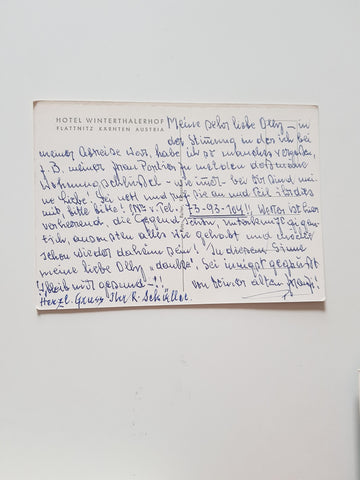 HOTEL WINTERTHALERHOF
FLATTNITZ KÄRNTEN AUSTRIA
Meine sehr liebe Olly – in
der Stimmung in der ich bei
meiner Abreise war, habe ich so manches vergessen,
z. B. meiner Frau Portier zu melden daß meine
Wohnungsschlüssel – wie immer – bei Dir sind, mei-
ne Liebe! Sei nett und ruf sie an und teil ihr das
mit, bitte bitte! (Nr. Tel. 73-93-104)!! Wetter ist hier
vorherrschend, die Gegend schön, Unterkunft eigen-
tlich, ansonsten alles wie gehabt und möchte
schon wieder daheim sein! In diesem Sinne
meine liebe Olly, "danke"! Sei innigst gegrüßt
(bleib mir gesund –!! von Deiner alten
Herzl. Gruss Ihr R. Schüller.